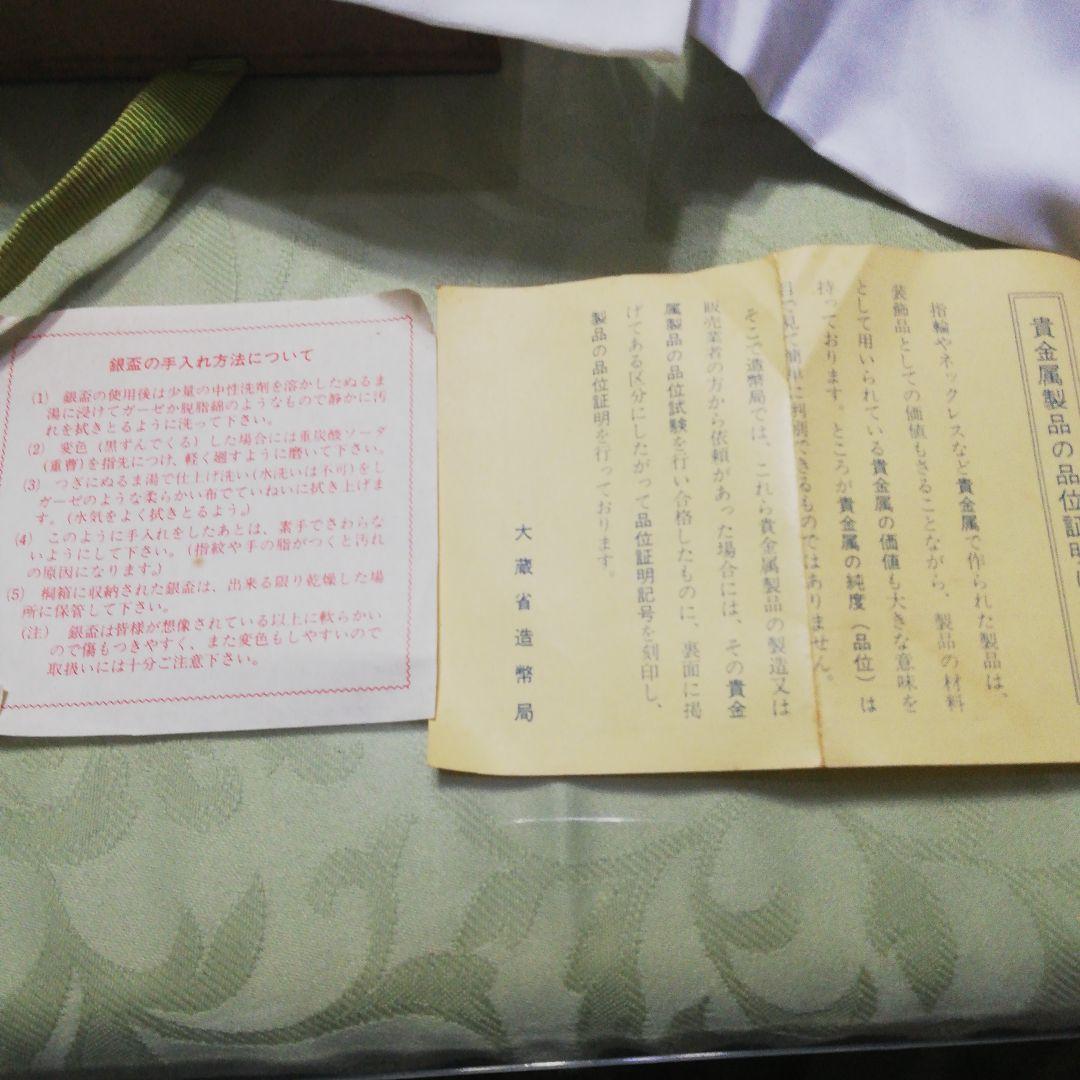 銀盃の手入れ方法について
(1) 銀盃の使用後は少量の中性洗剤を溶かしたぬるま
湯に浸けてガーゼか脱脂綿のようなもので静かに汚
れを拭きとるように洗って下さい。
(2) 変色(黒ずんでくる)した場合には重炭酸ソーダ
(重曹)を指先につけ、軽く廻すように磨いて下さい。
(3) つぎにぬるま湯で仕上げ洗い(水洗いは不可)をし
ガーゼのような柔らかい布でていねいに拭き上げま
す。(水気をよく拭きとるよう。)
(4) このように手入れをしたあとは、素手でさわらな
いようにして下さい。(指紋や手の脂がつくと汚れ
の原因になります。)
(5) 桐箱に収納された銀盃は、出来る限り乾燥した場
所に保管して下さい。
(注) 銀盃は皆様が想像されている以上に軟らかい
ので傷もつきやすく、また変色もしやすいので
取扱いには十分ご注意下さい。
貴金属製品の品位証明
指輪やネックレスなど貴金属で作られた製品は、
装飾品としての価値もさることながら、製品の材料
として用いられている貴金属の価値も大きな意味を
持っております。ところが貴金属の純度(品位)は
目で見て簡単に判別できるものではありません。
そこで造幣局では、これら貴金属製品の製造又は
販売業者の方から依頼があった場合には、その貴金
属製品の品位試験を行い合格したものに、裏面に掲
げてある区分にしたがって品位証明記号を刻印し、
製品の品位証明を行っております。
大蔵省造幣局